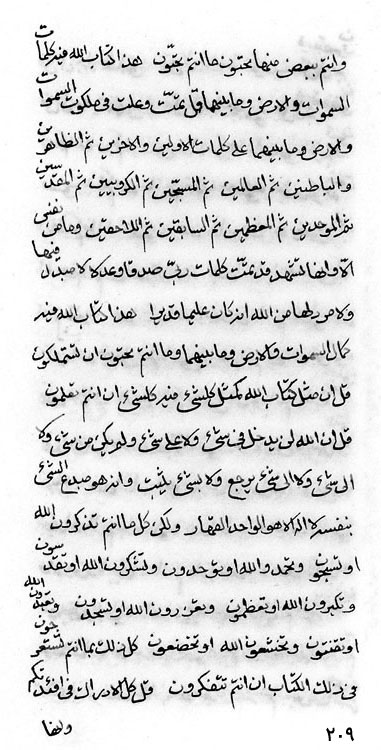 وانتم ببعض منها تحبون ما انتم تحبون هذا كتاب الله فيه كلمات
السموات والارض وما بينهما قل تمت وعلت في ملكوت السموات
والارض وما بينهما على كلمات الاولين والاخرين ثم الظاهرين
والباطنين ثم العالمين ثم المسبحين ثم الكروبيين ثم المقدسين
ثم الموحدين ثم المعظمين ثم السابقين ثم اللاحقين وما من نفس
الا وانها لتشهد قد تمت كلمات ربك صدقا وعدلا لا مبدل فيها
ولا مرد لها من الله انه كان عليما قديرا هذا كتاب الله فيه
كمال السموات والارض وما بينهما وما انتم تحبون ان تستملكون
قل ان مثل كتاب الله كمثل كلشئ فيه كلشئ ان انتم تعلمون
قل ان الله لن يدخل في شئ ولا على شئ ولم يكن من شئ ولا
الى شئ ولا الى شئ يرجع ولا بشئ يثبت وانه هو مبدع الشئ
بنفسه لا اله الا هو الواحد القهار ولكن كل ما انتم تذكرون الله
او تسبحون وتحمدوا الله او توحدون وتشكرون الله او تقدسون
وتكبرون الله او تعظمون وتعززون الله او تسجدون وتعبدون الله
او تقنتون وتخشعون الله او تخضعون كل ذلك بما انتم تستغرحون
في ذلك الكتاب ان انتم تتفكرون قل كل الادراك في افئدتكم
وانها
٢٠٩